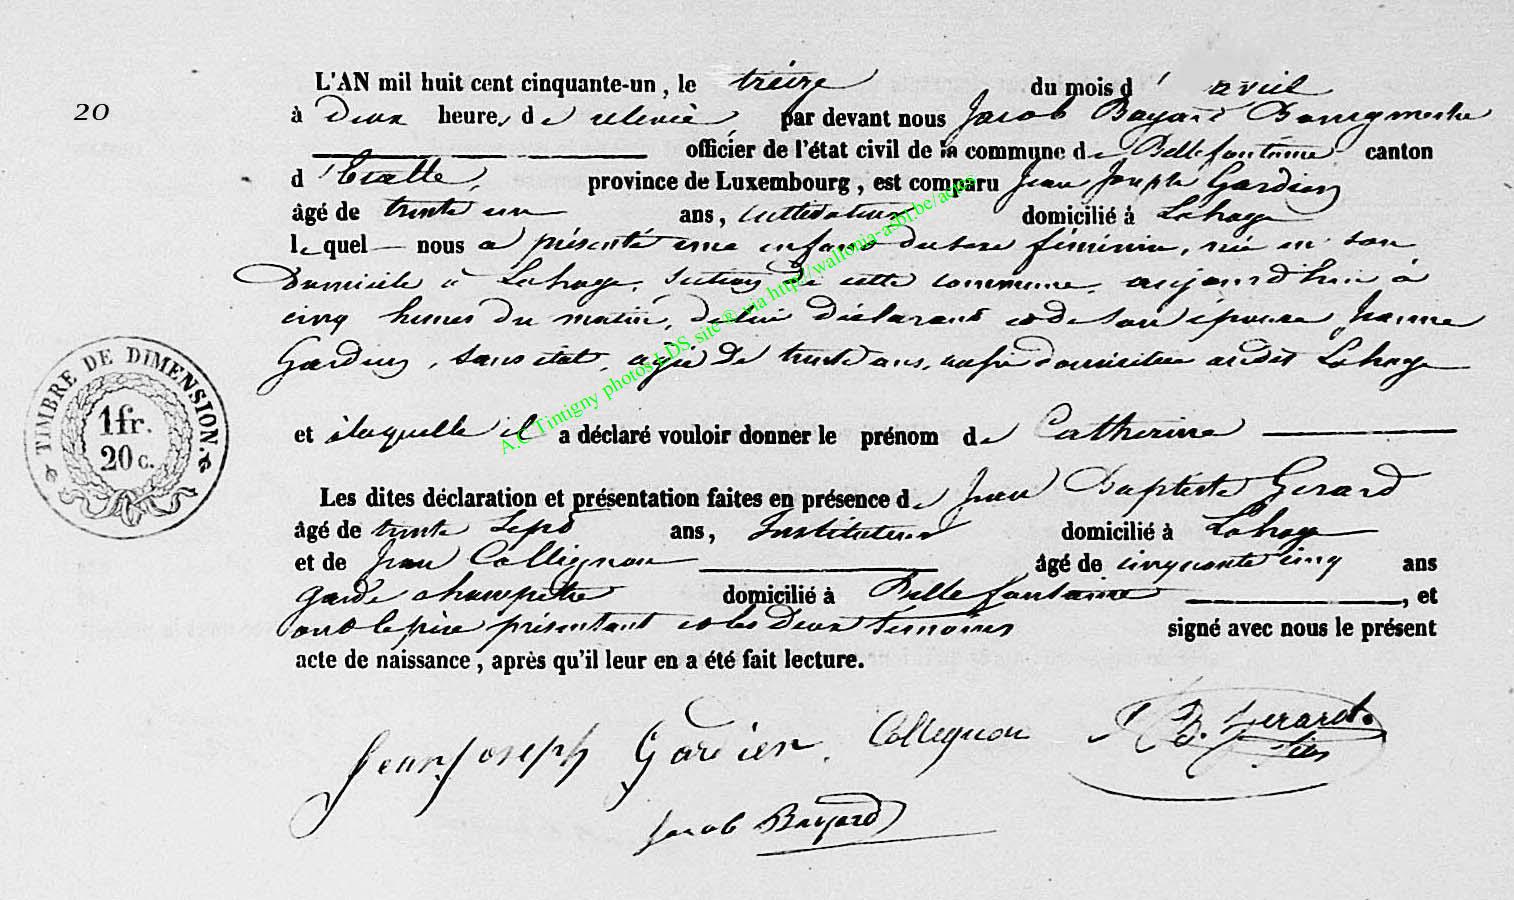 20
L'AN mil huit cent cinquante-un, le treize du mois d'avril
à deux heures de relevée par devant nous Jacob Bayard Bourgmestre
officier de l'état civil de la commune de Bellefontaine canton
d'Etalle, province de Luxembourg, est comparu Jean Joseph Gardien
âgé de trente un ans, cultivateur domicilié à Lahage
lequel nous a présenté une enfant du sexe féminin, née en son
Domicile à Lahage, section de cette commune, aujourd'hui à
cinq heures du matin, de lui déclarant et de son épouse Jeanne
Gardien, sans état, agée de trente ans, aussi domiciliée audit Lahage
et à laquelle il a déclaré vouloir donner le prénom de Catherine
Les dites déclaration et présentation faites en présence de Jean Baptiste Gerard
âgé de trente sept ans, Instituteur domicilié à Lahage
et de Jean Collignon âgé de cinquante cinq ans
garde champetre domicilié à Bellefontaine, et
ont le père présentant et les deux témoins signé avec nous le présent
acte de naissance, après qu'il leur en a été fait lecture.
Jean Joseph Gardien Collegnon J B. Gerard.
fils
Jacob Bayard
TIMBRE DE DIMENSION.
1 fr.
20 c.
A.C Tintigny photos LDS site ® via http://wallonia-asbl.be/actes